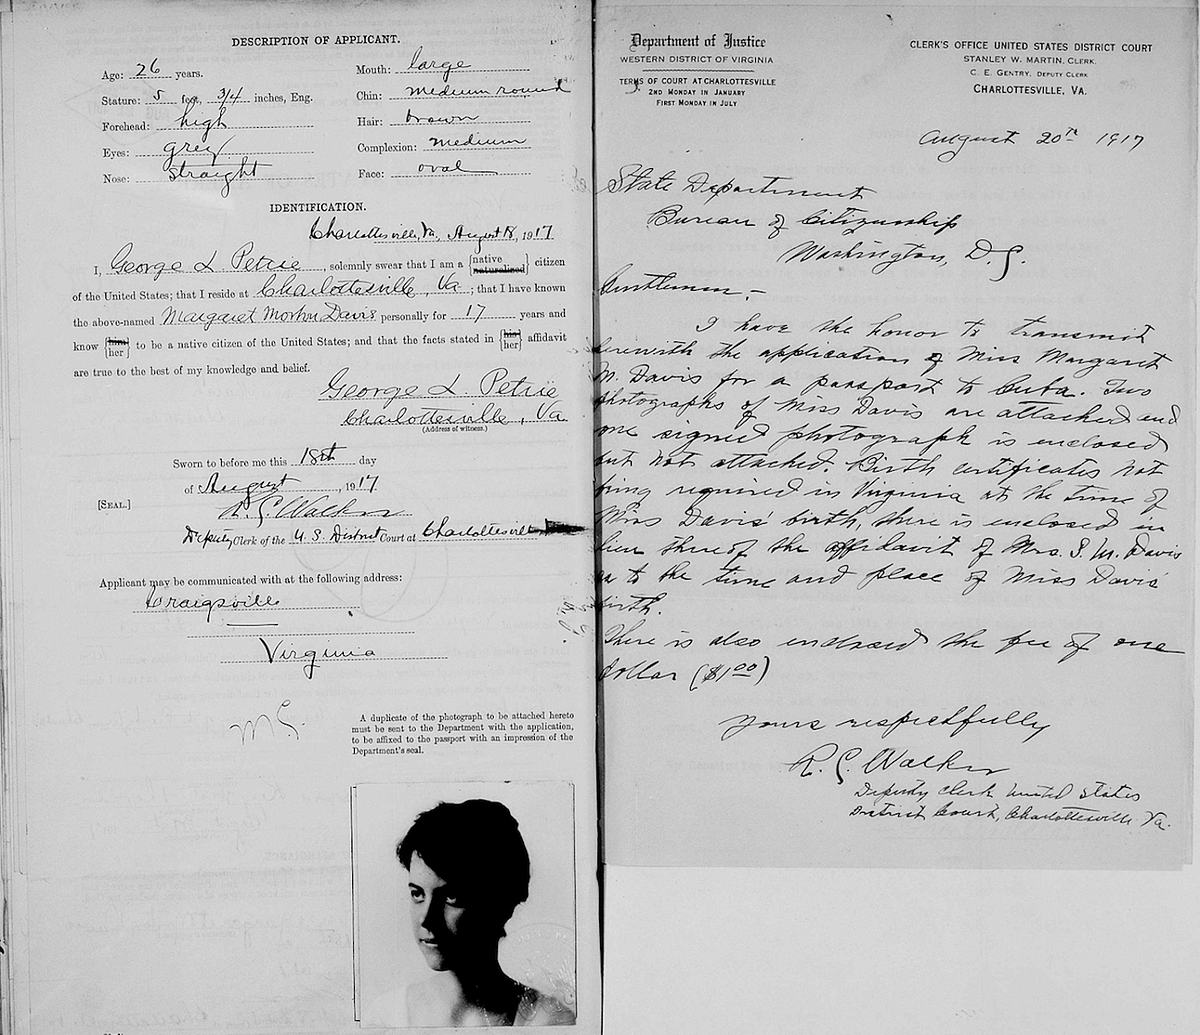 DESCRIPTION OF APPLICANT.
Age: 26 years.
Stature: 5 feet, 3/4 inches, Eng.
Forehead: high
Eyes: grey
Nose: straight
Mouth: large
Chin: medium round
Hair: brown
Complexion: medium
Face: oval
IDENTIFICATION.
Charlottesville, Va, August 18, 1917
I, George L. Petrie, solemnly swear that I am a {native naturalized} citizen
of the United States; that I reside at Charlottesville, Va; that I have known
the above-named Margaret Morton Davis personally for 17 years and
know {him her} to be a native citizen of the United States; and that the facts stated in {his her} affidavit
are true to the best of my knowledge and belief.
George L. Petrie
Charlottesville, Va
(Address of witness.)
Sworn to before me this 18th day
of August, 1917
[SEAL.]
Deputy Clerk of the U.S. District Court at Charlottesville
Applicant may be communicated with at the following address:
Craigsville
Virginia
A duplicate of the photograph to be attached hereto
must be sent to the Department with the application,
to be affixed to the passport with an impression of the
Department's seal.
Department of Justice
WESTERN DISTRICT OF VIRGINIA
TERMS OF COURT AT CHARLOTTESVILLE
2ND MONDAY IN JANUARY
FIRST MONDAY IN JULY
CLERK'S OFFICE UNITED STATES DISTRICT COURT
STANLEY W. MARTIN, CLERK.
C. E. GENTRY, DEPUTY CLERK
CHARLOTTESVILLE, VA.
August 20th 1917
State Department
Bureau of Citizenship
Washington, D.C.
Gentlemen:-
I have the honor to transmit
herewith the application of Miss Margaret
M. Davis for a passport to Cuba. Two
photographs of Miss Davis are attached and
one signed photograph is enclosed
but not attached. Birth certificates not
being required in Virginia at the time of
Miss Davis' birth, there is enclosed in
lieu thereof the affidavit of Mrs. S. M. Davis
as to the time and place of Miss Davis'
birth.
There is also enclosed the fee of one
dollar ($1.00)
Yours respectfully
R. C. Walker
Deputy Clerk United States
District Court, Charlottesville Va.